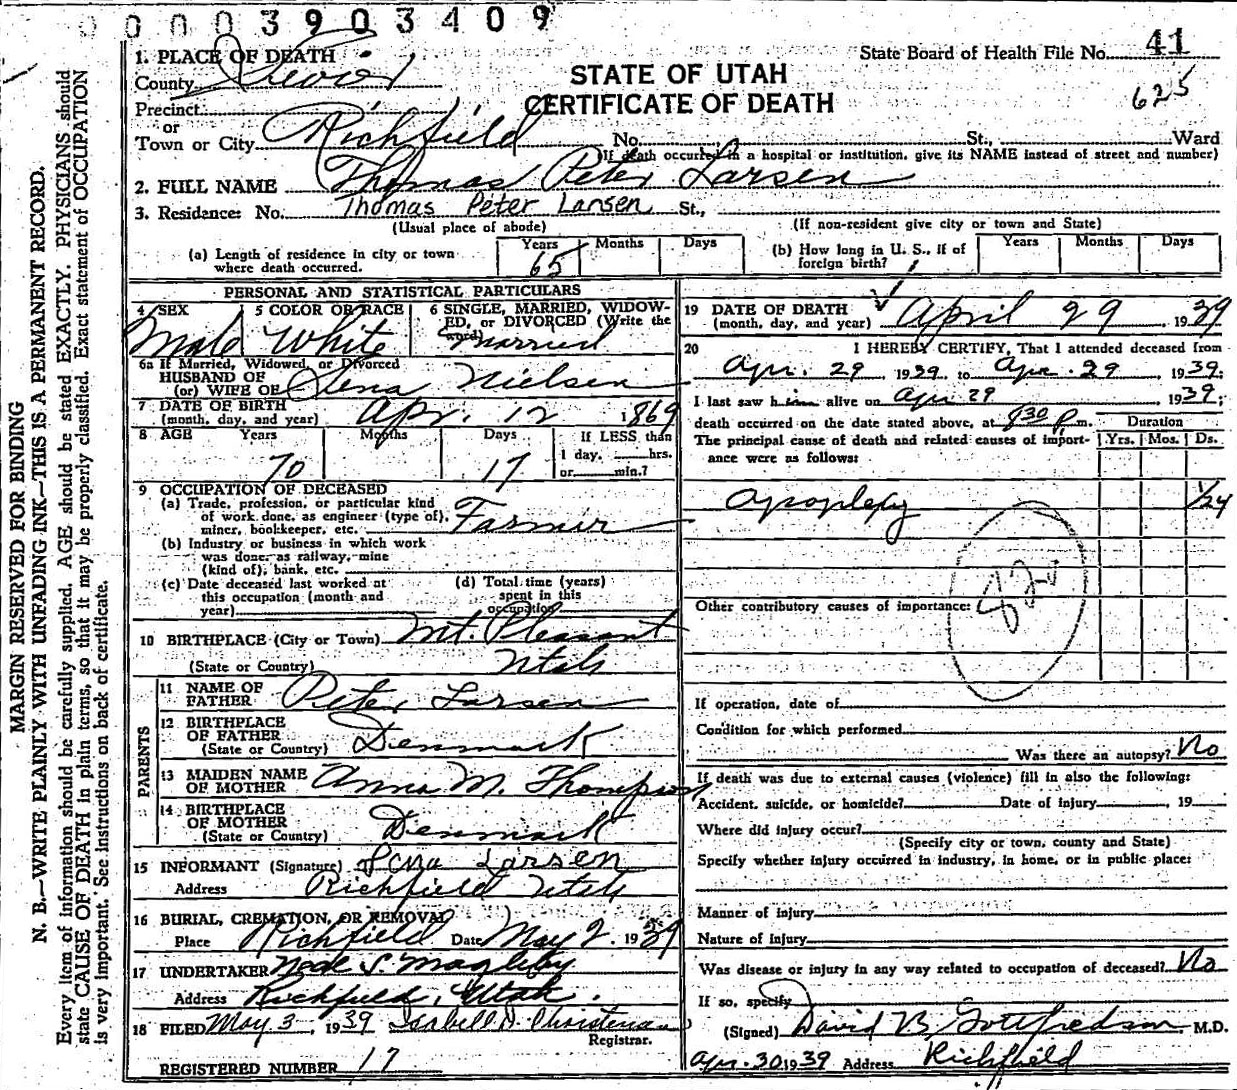 0003903409
1. PLACE OF DEATH
County Sevier
State Board of Health File No. 41
STATE OF UTAH
625
Precinct
CERTIFICATE OF DEATH
or
Town or City Richfield No. St., Ward
(If death occurred in a hospital or institution, give its NAME instead of street and number)
2. FULL NAME Thomas Peter Larsen
3. Residence: No. Thomas Peter Larsen St.,
(Usual place of abode) (If non-resident give city or town and State)
(a) Length of residence in city or town where death occurred. Years 65 Months Days
(b) How long in U. S., if of foreign birth? Years Months Days
PERSONAL AND STATISTICAL PARTICULARS
4 SEX 5 COLOR OR RACE 6 SINGLE, MARRIED, WIDOW-
ED, or DIVORCED (Write the
word)
Male White Married
6a If Married, Widowed, or Divorced
HUSBAND OF
(or) WIFE OF Lena Nielsen
7 DATE OF BIRTH
(month, day, and year) Apr. 12 1869
8 AGE Years Months Days If LESS than
1 day, hrs.
70 17 or min.?
9 OCCUPATION OF DECEASED
(a) Trade, profession, or particular kind
of work done, as engineer (type of),
miner, bookkeeper, etc. Farmer
(b) Industry or business in which work
was done, as railway, mine
(kind of), bank, etc.
(c) Date deceased last worked at
this occupation (month and
year)
(d) Total time (years)
spent in this
occupation
10 BIRTHPLACE (City or Town) Mt. Pleasant
(State or Country) Utah
PARENTS
11 NAME OF
FATHER Peter Larsen
12 BIRTHPLACE
OF FATHER
(State or Country) Denmark
13 MAIDEN NAME
OF MOTHER Anna M. Thompson
14 BIRTHPLACE
OF MOTHER
(State or Country) Denmark
15 INFORMANT (Signature) Lena Larsen
Address Richfield Utah
16 BURIAL, CREMATION, OR REMOVAL
Place Richfield Date May 2, 1939
17 UNDERTAKER Neal S. Magleby
Address Richfield, Utah.
18 FILED May 3, 1939 Isabell D. Christensen
Registrar.
REGISTERED NUMBER 17
19 DATE OF DEATH
(month, day, and year) April 29, 1939
20 I HEREBY CERTIFY, That I attended deceased from
Apr. 29 1939 to Apr. 29 1939;
I last saw him alive on Apr 29, 1939;
death occurred on the date stated above, at 830 p m. Duration
The principal cause of death and related causes of import-
ance were as follows: Yrs. Mos. Ds.
apoplexy 1/24
82a
Other contributory causes of importance:
If operation, date of
Condition for which performed
Was there an autopsy? No
If death was due to external causes (violence) fill in also the following:
Accident, suicide, or homicide? Date of injury , 19
Where did injury occur?
(Specify city or town, county and State)
Specify whether injury occurred in industry, in home, or in public place:
Manner of injury
Nature of injury
Was disease or injury in any way related to occupation of deceased? No
If so, specify
(Signed) David B Gottfredson M.D.
Apr. 30 1939 Address Richfield
MARGIN RESERVED FOR BINDING
N. B.—WRITE PLAINLY WITH UNFADING INK—THIS IS A PERMANENT RECORD.
Every item of information should be carefully supplied. AGE should be stated EXACTLY. PHYSICIANS should
state CAUSE OF DEATH in plain terms, so that it may be properly classified. Exact statement of OCCUPATION
is very important. See instructions on back of certificate.